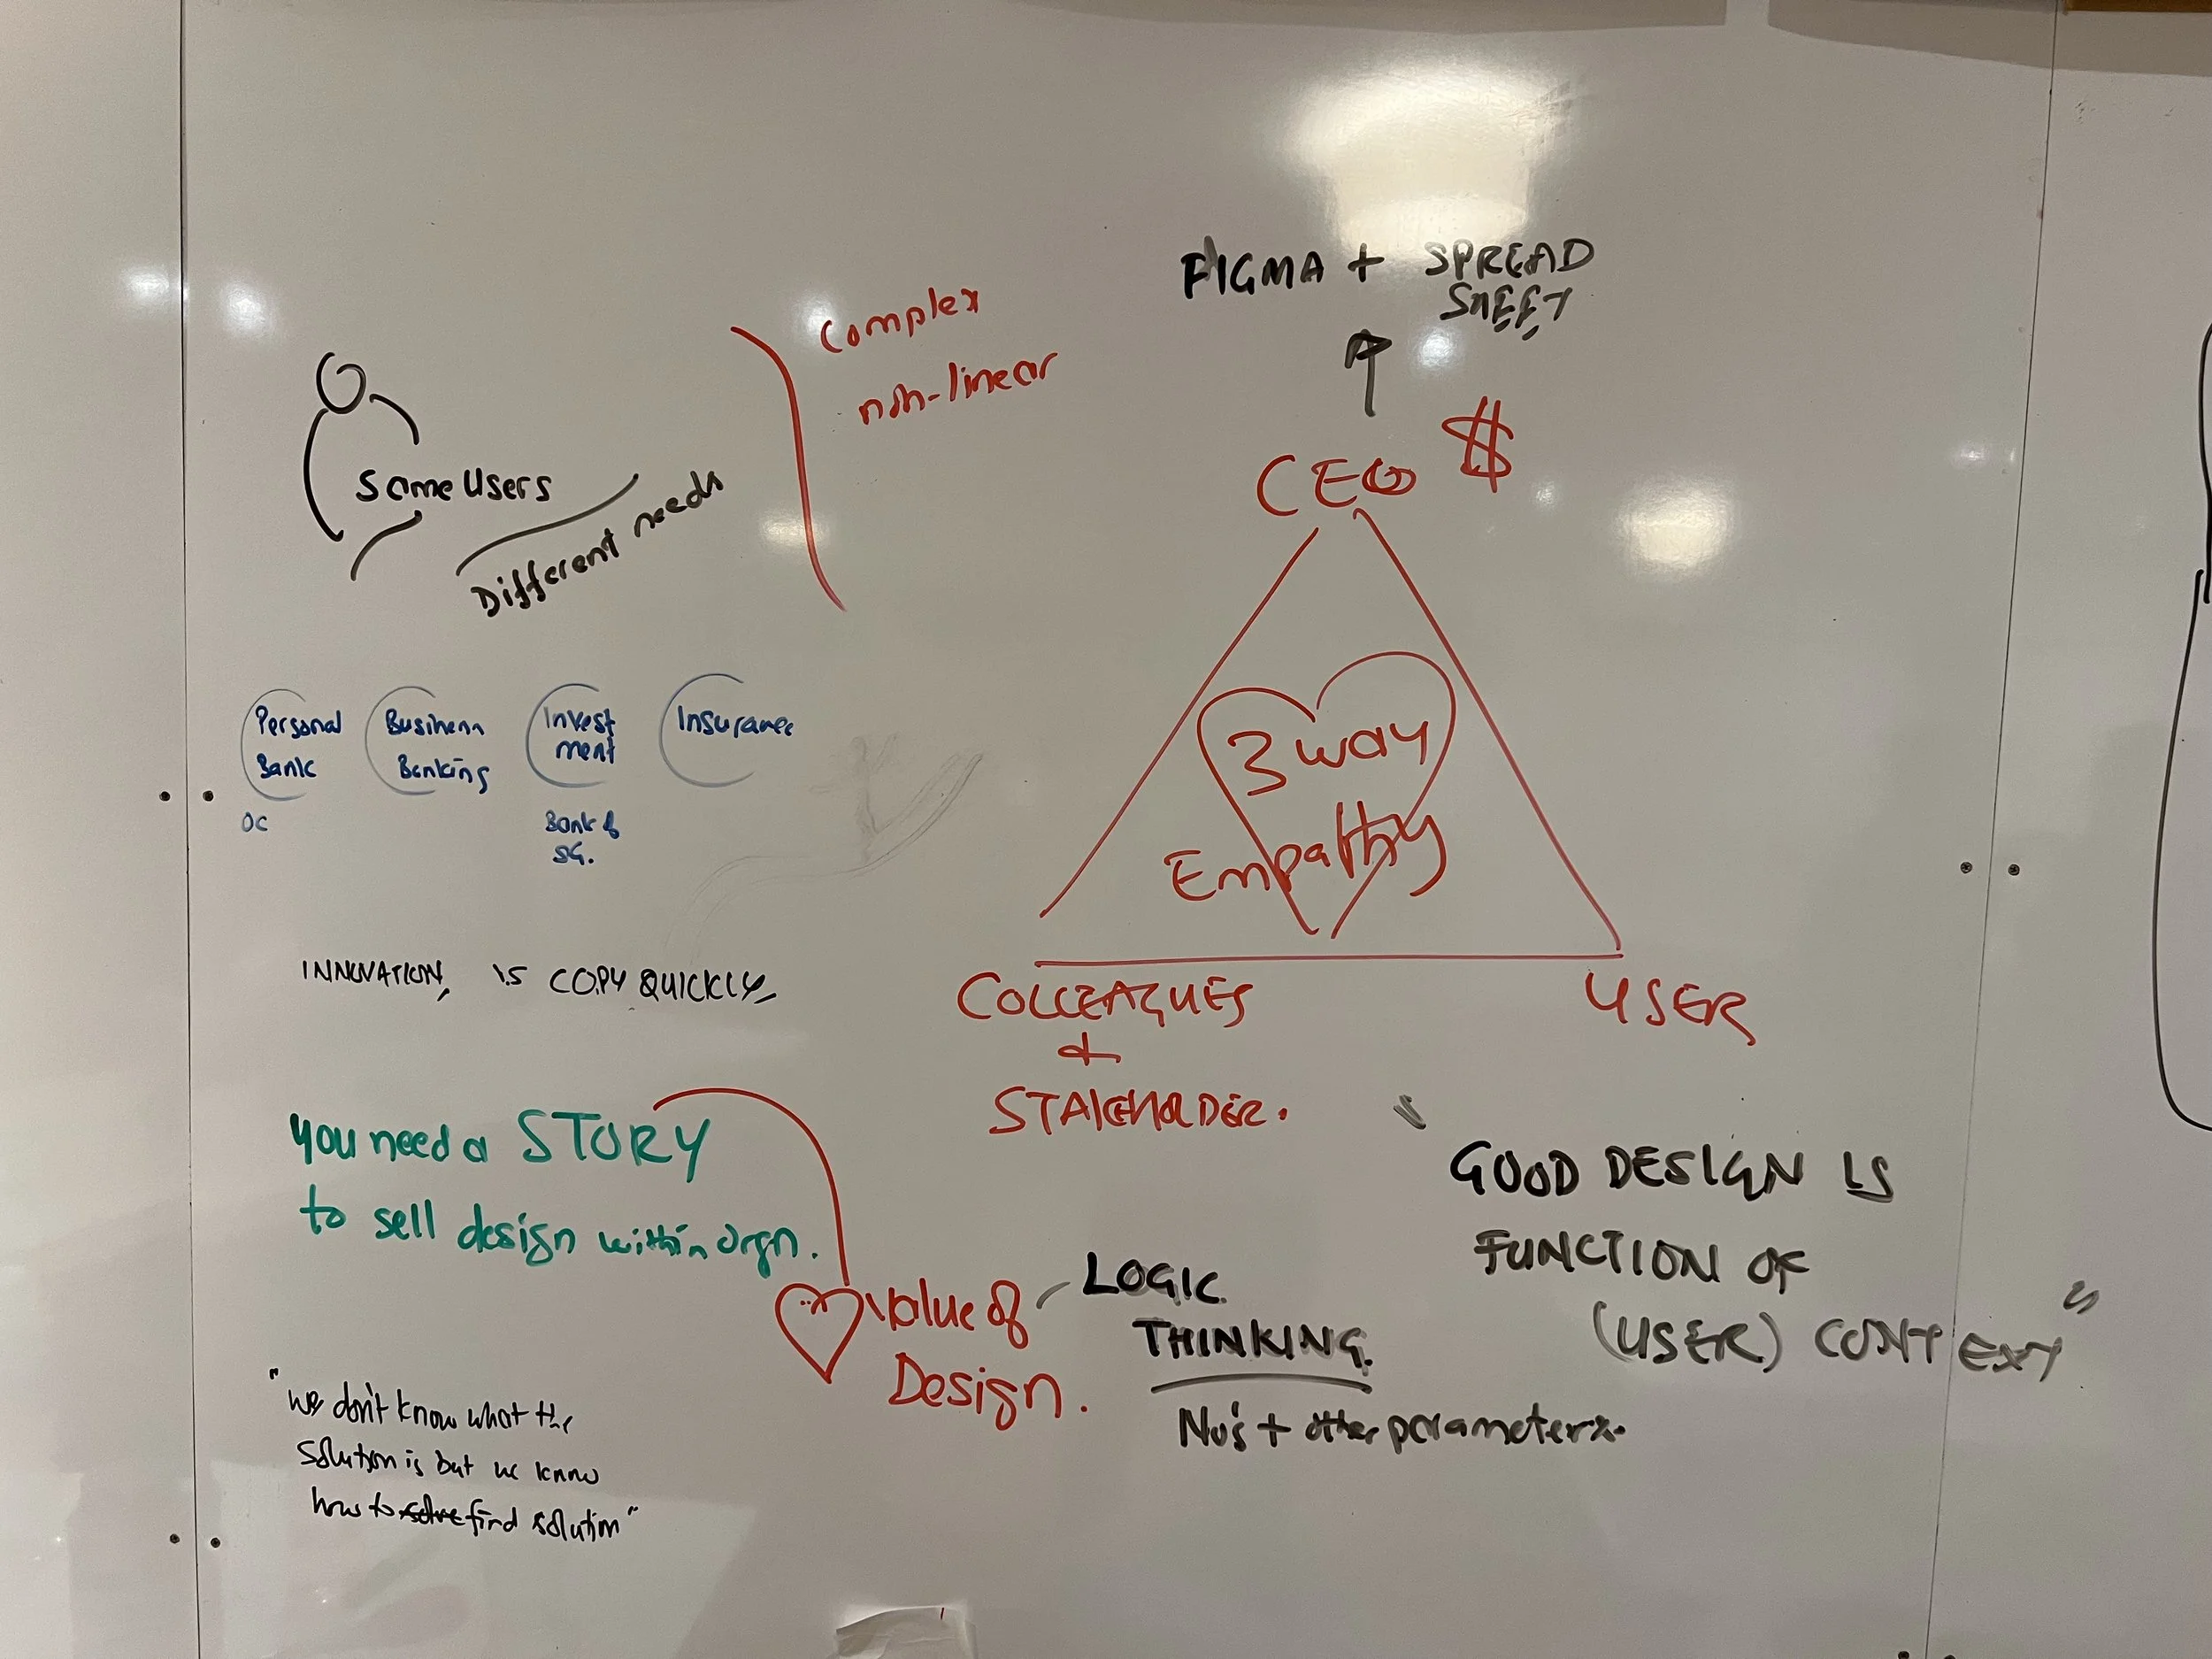 Same Users
Different needs
Complex
non-linear
Personal
Bank
OC
Business
Banking
Invest
ment
Bank of
SG.
Insurance
INNOVATION, IS COPY QUICKLY
FIGMA + SPREAD
SHEET
CEO $
3 way
Empathy
COLLEAGUES
+
STAKEHOLDER.
USER
You need a STORY
to sell design within orgn.
Value of
Design.
LOGIC
THINKING.
No's + other parameters.
"GOOD DESIGN IS
FUNCTION OF
(USER) CONTEXT"
"We don't know what the
solution is but we know
how to solve find solution"